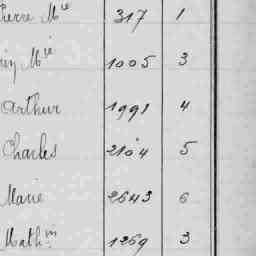 Pierre Mie 317 1
Mie 1005 3
Arthur 1991 4
Charles 2104 5
Marie 2643 6
Mathm 1269 3